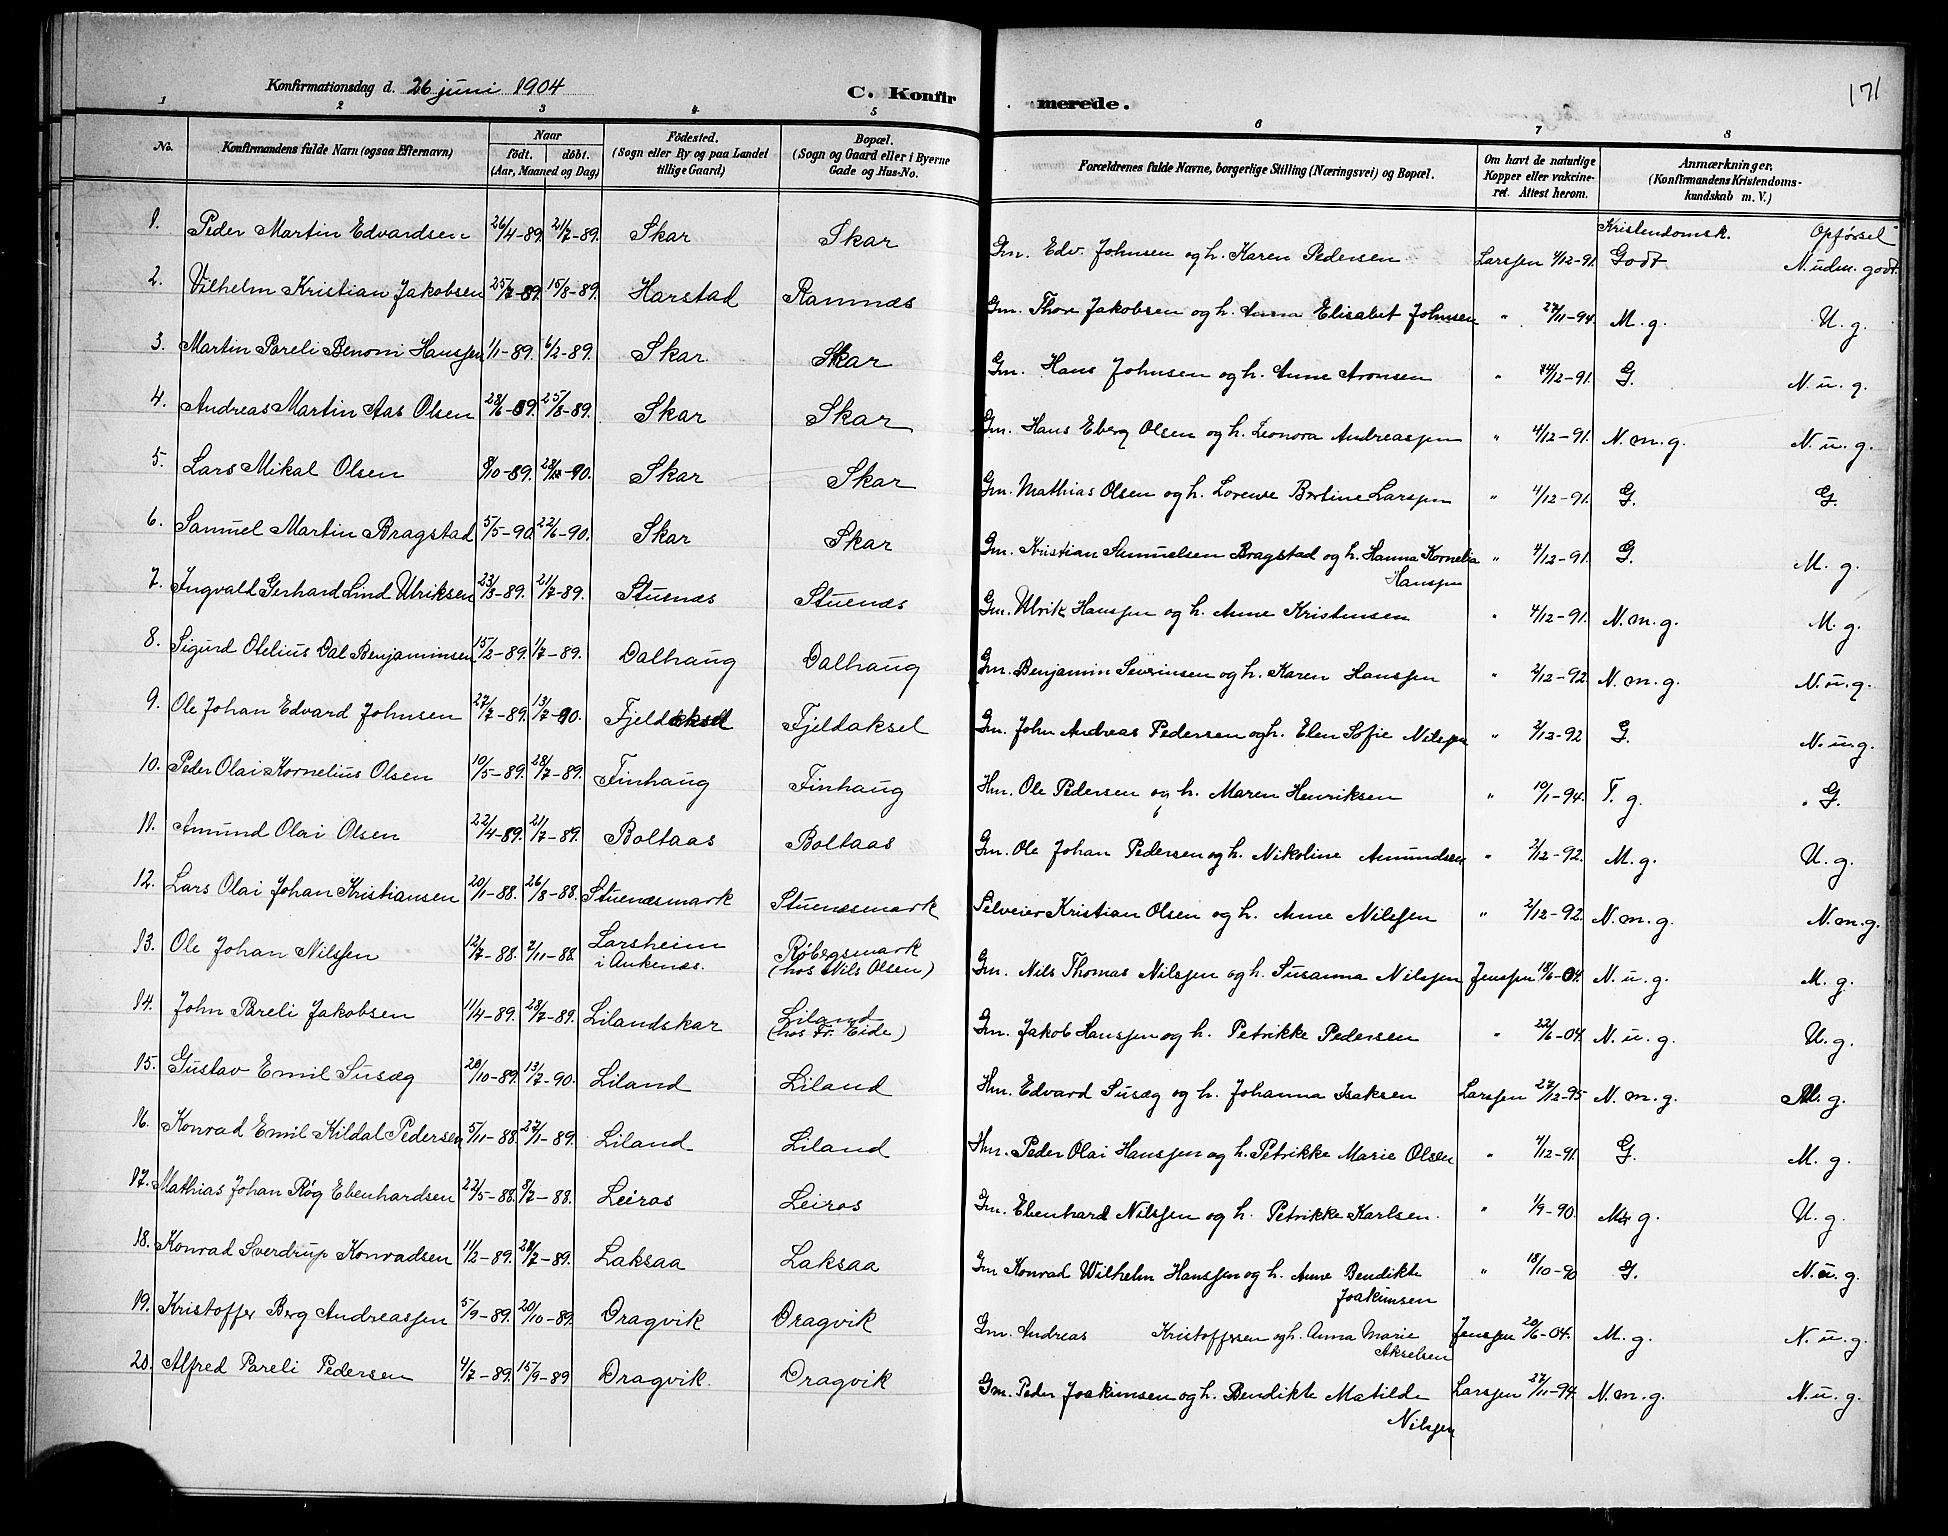 Konfirmationsdag d. 26 juni 1904
C. Konfirmerede.
171
1 2 3 4 5 6 7 8
No. | Konfirmandens fulde Navn (ogsaa Efternavn) | Naar født. døbt. (Aar, Maaned og Dag) | Fødested. (Sogn eller By og paa Landet tillige Gaard) | Bopæl. (Sogn og Gaard eller i Byerne Gade og Hus-No. | Forældrenes fulde Navne, borgerlige Stilling (Næringsvei) og Bopæl. | Om havt de naturlige Kopper eller vakcineret. Attest herom. | Anmærkninger, (Konfirmandens Kristendomskundskab m. V.)
Kristendomsk. Opførsel
1. Peder Martin Edvardsen 26/4-89. 21/7-89. Skar Skar Gm. Edv. Johnsen og h. Karen Pedersen Larssen 4/12-91. Godt N. udm. godt
2. Vilhelm Kristian Jakobsen 25/7-89. 15/8-89. Harstad Ramnæs Gm. Thore Jakobsen og h. Anna Elisabet Johnsen " 27/11-94. M. g. U. g.
3. Martin Pareli Benoni Hanssen 1/1-89. 6/2-89. Skar Skar Gm. Hans Johnsen og h. Anne Aronsen " 4/12-91. G. N. u. g.
4. Andreas Martin Aas Olsen 28/6-89. 25/8-89. Skar Skar Gm. Hans Eberg Olsen og h. Leonora Andreassen " 4/12-91. N. m. g. N. u. g.
5. Lars Mikal Olsen 8/10-89. Skar Skar Gm. Mathias Olsen og h. Lorense Bertine Larssen " 4/12-91. G. G.
6. Samuel Martin Bragstad 5/5-90 22/6-90. Skar Skar Gm. Kristian Samuelsen Bragstad og h. Hanna Kornelia Hanssen " 4/12-91. G. M. g.
7. Ingvald Gerhard Lind Ulriksen 23/3-89. 21/7-89. Stuenæs Stuenæs Gm. Ulrik Hanssen og h. Anne Kristensen " 4/12-91. N. m. g. M. g.
8. Sigurd Otelius Dal Benjaminsen 15/2-89. 1/7-89. Dalhaug Dalhaug Gm. Benjamin Severinsen og h. Karen Hanssen " 2/12-92 N. m. g. N. u. g.
9. Ole Johan Edvard Johnsen 27/7-89. 13/7-90. Fjeldaksel Fjeldaksel Gm. John Andreas Pedersen og h. Elen Sofie Nilssen " 2/12-92 G. N. u. g.
10. Peder Olai Kornelius Olsen 10/5-89. 28/7-89. Finhaug Finhaug Hm. Ole Pedersen og h. Maren Henriksen " 19/1-94. T. g. G.
11. Amund Olai Olsen 22/4-89. 21/7-89. Boltaas Boltaas Gm. Ole Johan Pedersen og h. Nikoline Amundsen " 2/12-92. M. g. U. g.
12. Lars Olai Johan Kristiansen 20/1-88. 26/8-88. Stuenæsmark Stuenæsmark Selveier Kristian Olsen og h. Anne Nilssen " 2/12-92. N. m. g. N. m. g.
13. Ole Johan Nilssen 12/7-88. 2/11-88 Larsheim i Ankenæs. Røbergsmark (hos Nils Olsen) Gm. Nils Thomas Nilssen og h. Susanna Nilssen Jenssen 18/6-04. N. u. g. M. g.
14. John Pareli Jakobsen 11/4-89. 28/7-89. Lilandskar Liland (hos Fr. Eide) Gm. Jakob Hanssen og h. Petrikke Pedersen " 22/6-04. N. u. g. U. g.
15. Gustav Emil Susæg 20/10-89. 13/7-90. Liland Liland Hm. Edvard Susæg og h. Johanna Isaksen Larssen 27/12-95 N. m. g. M. g.
16. Konrad Emil Kildal Pedersen 5/11-88. 27/1-89. Liland Liland Hm. Peder Olai Hanssen og h. Petrikke Marie Olsen " 4/12-91. G. M. g.
17. Mathias Johan Røg Ebenhardsen 22/5-88. 8/7-88. Leiros Leiros Gm. Ebenhard Nilssen og h. Petrikke Karlsen. " 1/9-90. M. g. U. g.
18. Konrad Sverdrup Konradsen 11/2-89. 28/7-89. Laksaa Laksaa Gm Konrad Wilhelm Hanssen og h. Anne Bendikte Joakimsen " 18/10-90 G. N. u. g.
19. Kristoffer Berg Andreassen 5/9-89. 20/10-89. Dragvik Dragvik Gm. Andreas Kristoffersen og h. Anna Marie Akselsen Jenssen 20/6-04. M. g. N. u. g.
20. Alfred Pareli Pedersen 4/7-89. 15/9-89 Dragvik. Dragvik Gm. Peder Joakimsen og h. Bendikte Matilde Nilssen Larssen 27/11-94. N. m. g. N. u. g.